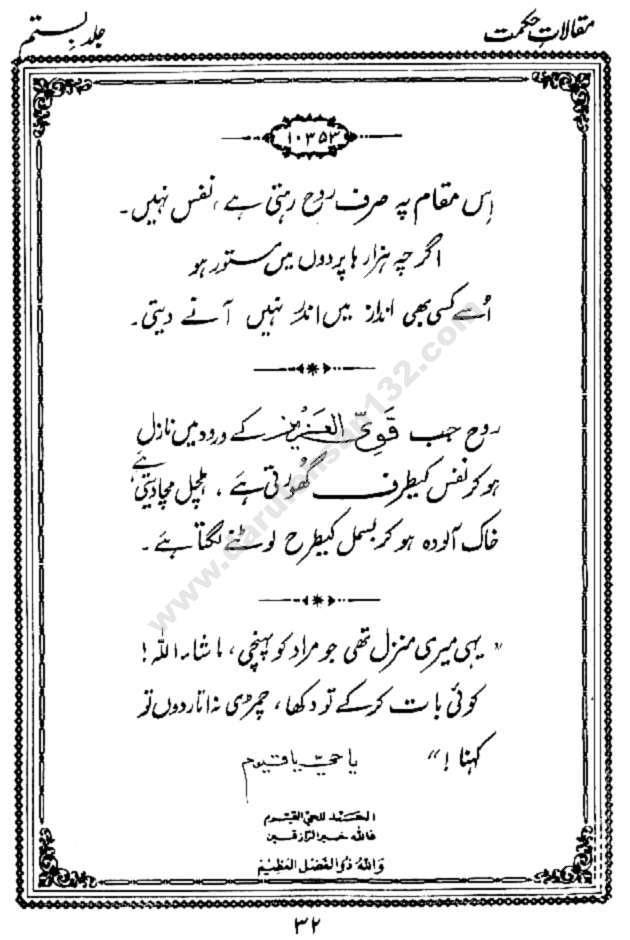 مقالاتِ حکمت
جلد بستم
۱۰۳۵۳
اِس مقام پہ صرف روح رہتی ہے، نفس نہیں۔
اگرچہ ہزارہا پردوں میں مستور ہو
اُسے کسی بھی انداز میں اندر نہیں آنے دیتی۔
روح جب قَوِیُّ العَزِیز کے ورود میں نازل
ہو کر نفس کیطرف گھُورتی ہَے، ہلچل مچا دیتی ہَے
خاک آلودہ ہو کر بسمل کیطرح لوٹنے لگتا ہَے۔
"یہی میری منزل تھی جو مراد کو پہنچی، ماشاء اللہ!
کوئی بات کر کے تو دکھا، چمڑی نہ اتار دوں تو
کہنا!" یا حیّ یا قیوم
الحَمد للحیّ القیّوم
فاللہ خیر الرّازقین
وَاللہُ ذُوالفَضلِ العَظِیم
۳۲
www.darulehsan132.com